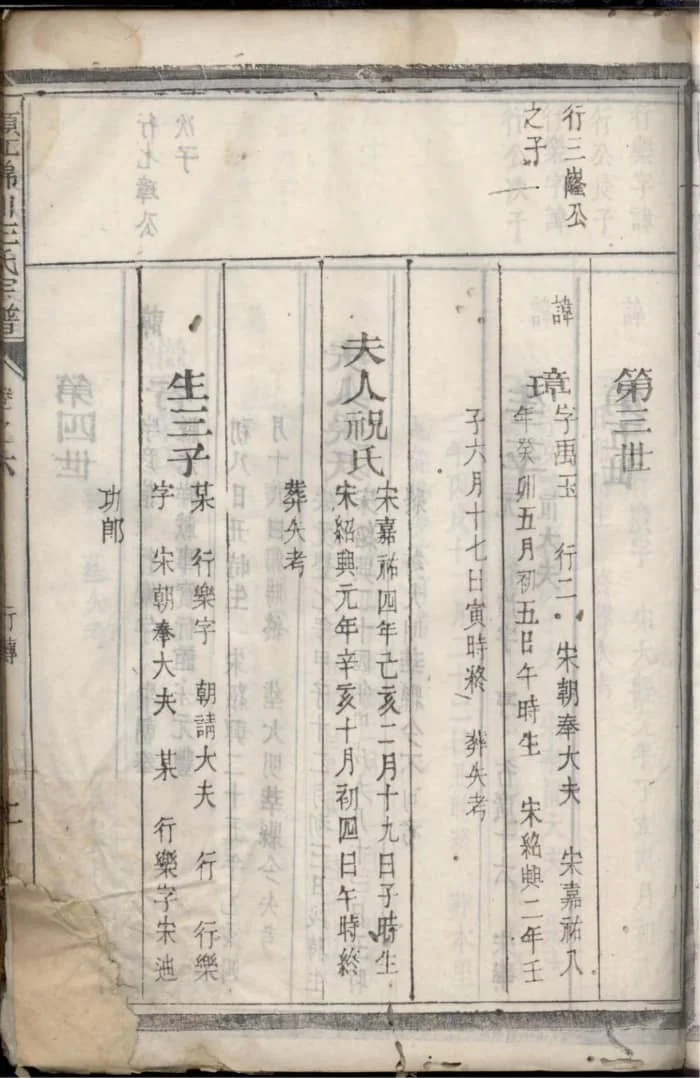 行三巃公
之子
第三世
諱
璋
字禹玉 行二 宋朝奉大夫 宋嘉祐八
年癸卯五月初五日午時生 宋紹興二年壬
子六月十七日寅時終 葬失考
夫人祝氏
宋嘉祐四年己亥二月十九日子時生
宋紹興元年辛亥十月初四日午時終
葬失考
生三子
某 行樂字 朝請大夫 行 行樂
字 宋朝奉大夫 某 行樂字宋迪
功郎
王氏宗譜
卷之六
行傳